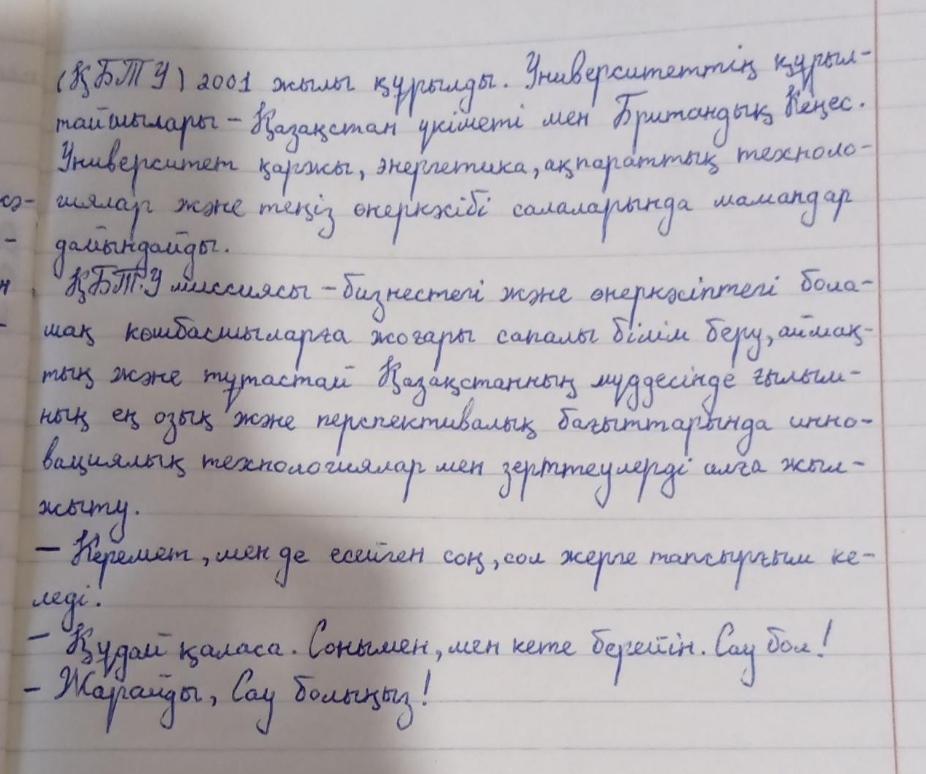 (ҚБТУ) 2001 жылы құрылды. Университеттің құрыл-
тайшылары – Қазақстан үкіметі мен Британдық Кеңес.
Университет қаржы, энергетика, ақпараттық техноло-
гиялар және теңіз өнеркәсібі салаларында мамандар
дайындайды.
ҚБТУ миссиясы – бизнестегі және өнеркәсіптегі бола-
шақ көшбасшыларға жоғары сапалы білім беру, аймақ-
тың және тұтастай Қазақстанның мүддесінде ғылым-
ның ең озық және перспективалық бағыттарында инно-
вациялық технологиялар мен зерттеулерді алға жыл-
жыту.
– Керемет, мен де есейген соң, сол жерге тапсырғым ке-
леді.
– Құдай қаласа. Сонымен, мен кете берейін. Сау бол!
– Жарайды, Сау болыңыз!